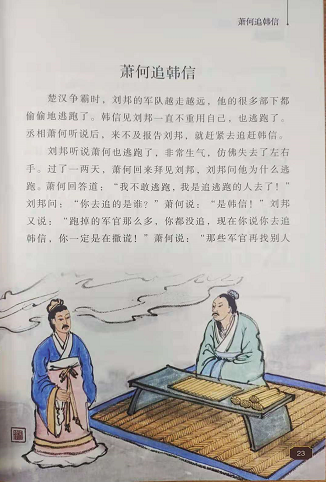 萧何追韩信
萧何追韩信
楚汉争霸时，刘邦的军队越走越远，他的很多部下都
偷偷地逃跑了。韩信见刘邦一直不重用自己，也逃跑了。
丞相萧何听说后，来不及报告刘邦，就赶紧去追赶韩信。
刘邦听说萧何也逃跑了，非常生气，仿佛失去了左右
手。过了一两天，萧何回来拜见刘邦，刘邦问他为什么逃
跑。萧何回答道：“我不敢逃跑，我是追逃跑的人去了！”
刘邦问：“你去追的是谁？”萧何说：“是韩信！”刘邦
又说：“跑掉的军官那么多，你都没追，现在你说你去追
韩信，你一定是在撒谎！”萧何说：“那些军官再找别人
23